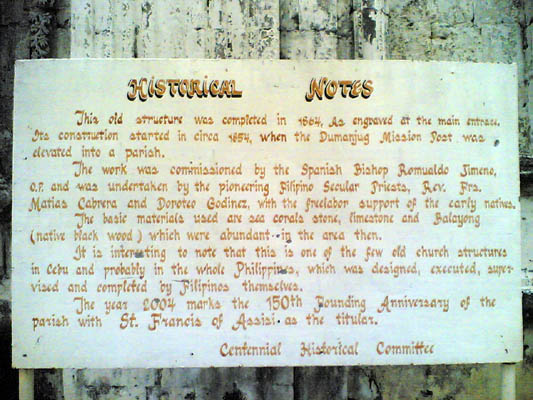 Historical Notes
This old structure was completed in 1864. As engraved at the main entrace.
Its constrution started in circa 1854, when the Dumanjug Mission Post was
elevated into a parish.
The work was commissioned by the Spanish Bishop Romualdo Jimeno,
O.P. and was undertaken by the pioneering Filipino Secular Priests, Rev. Frs.
Matias Cabrera and Doroteo Godinez, with the freelabor support of the early natives.
The basic materials used are sea corals stone, limestone and Balayong
(native black wood) which were abundant in the area then.
It is interesting to note that this is one of the few old church structures
in Cebu and probably in the whole Philippines, which was designed, executed, super
vised and completed by Filipinos themselves.
The year 2004 marks the 150th Founding Anniversary of the
parish with St. Francis of Assisi as the titular.
Centennial Historical Committee